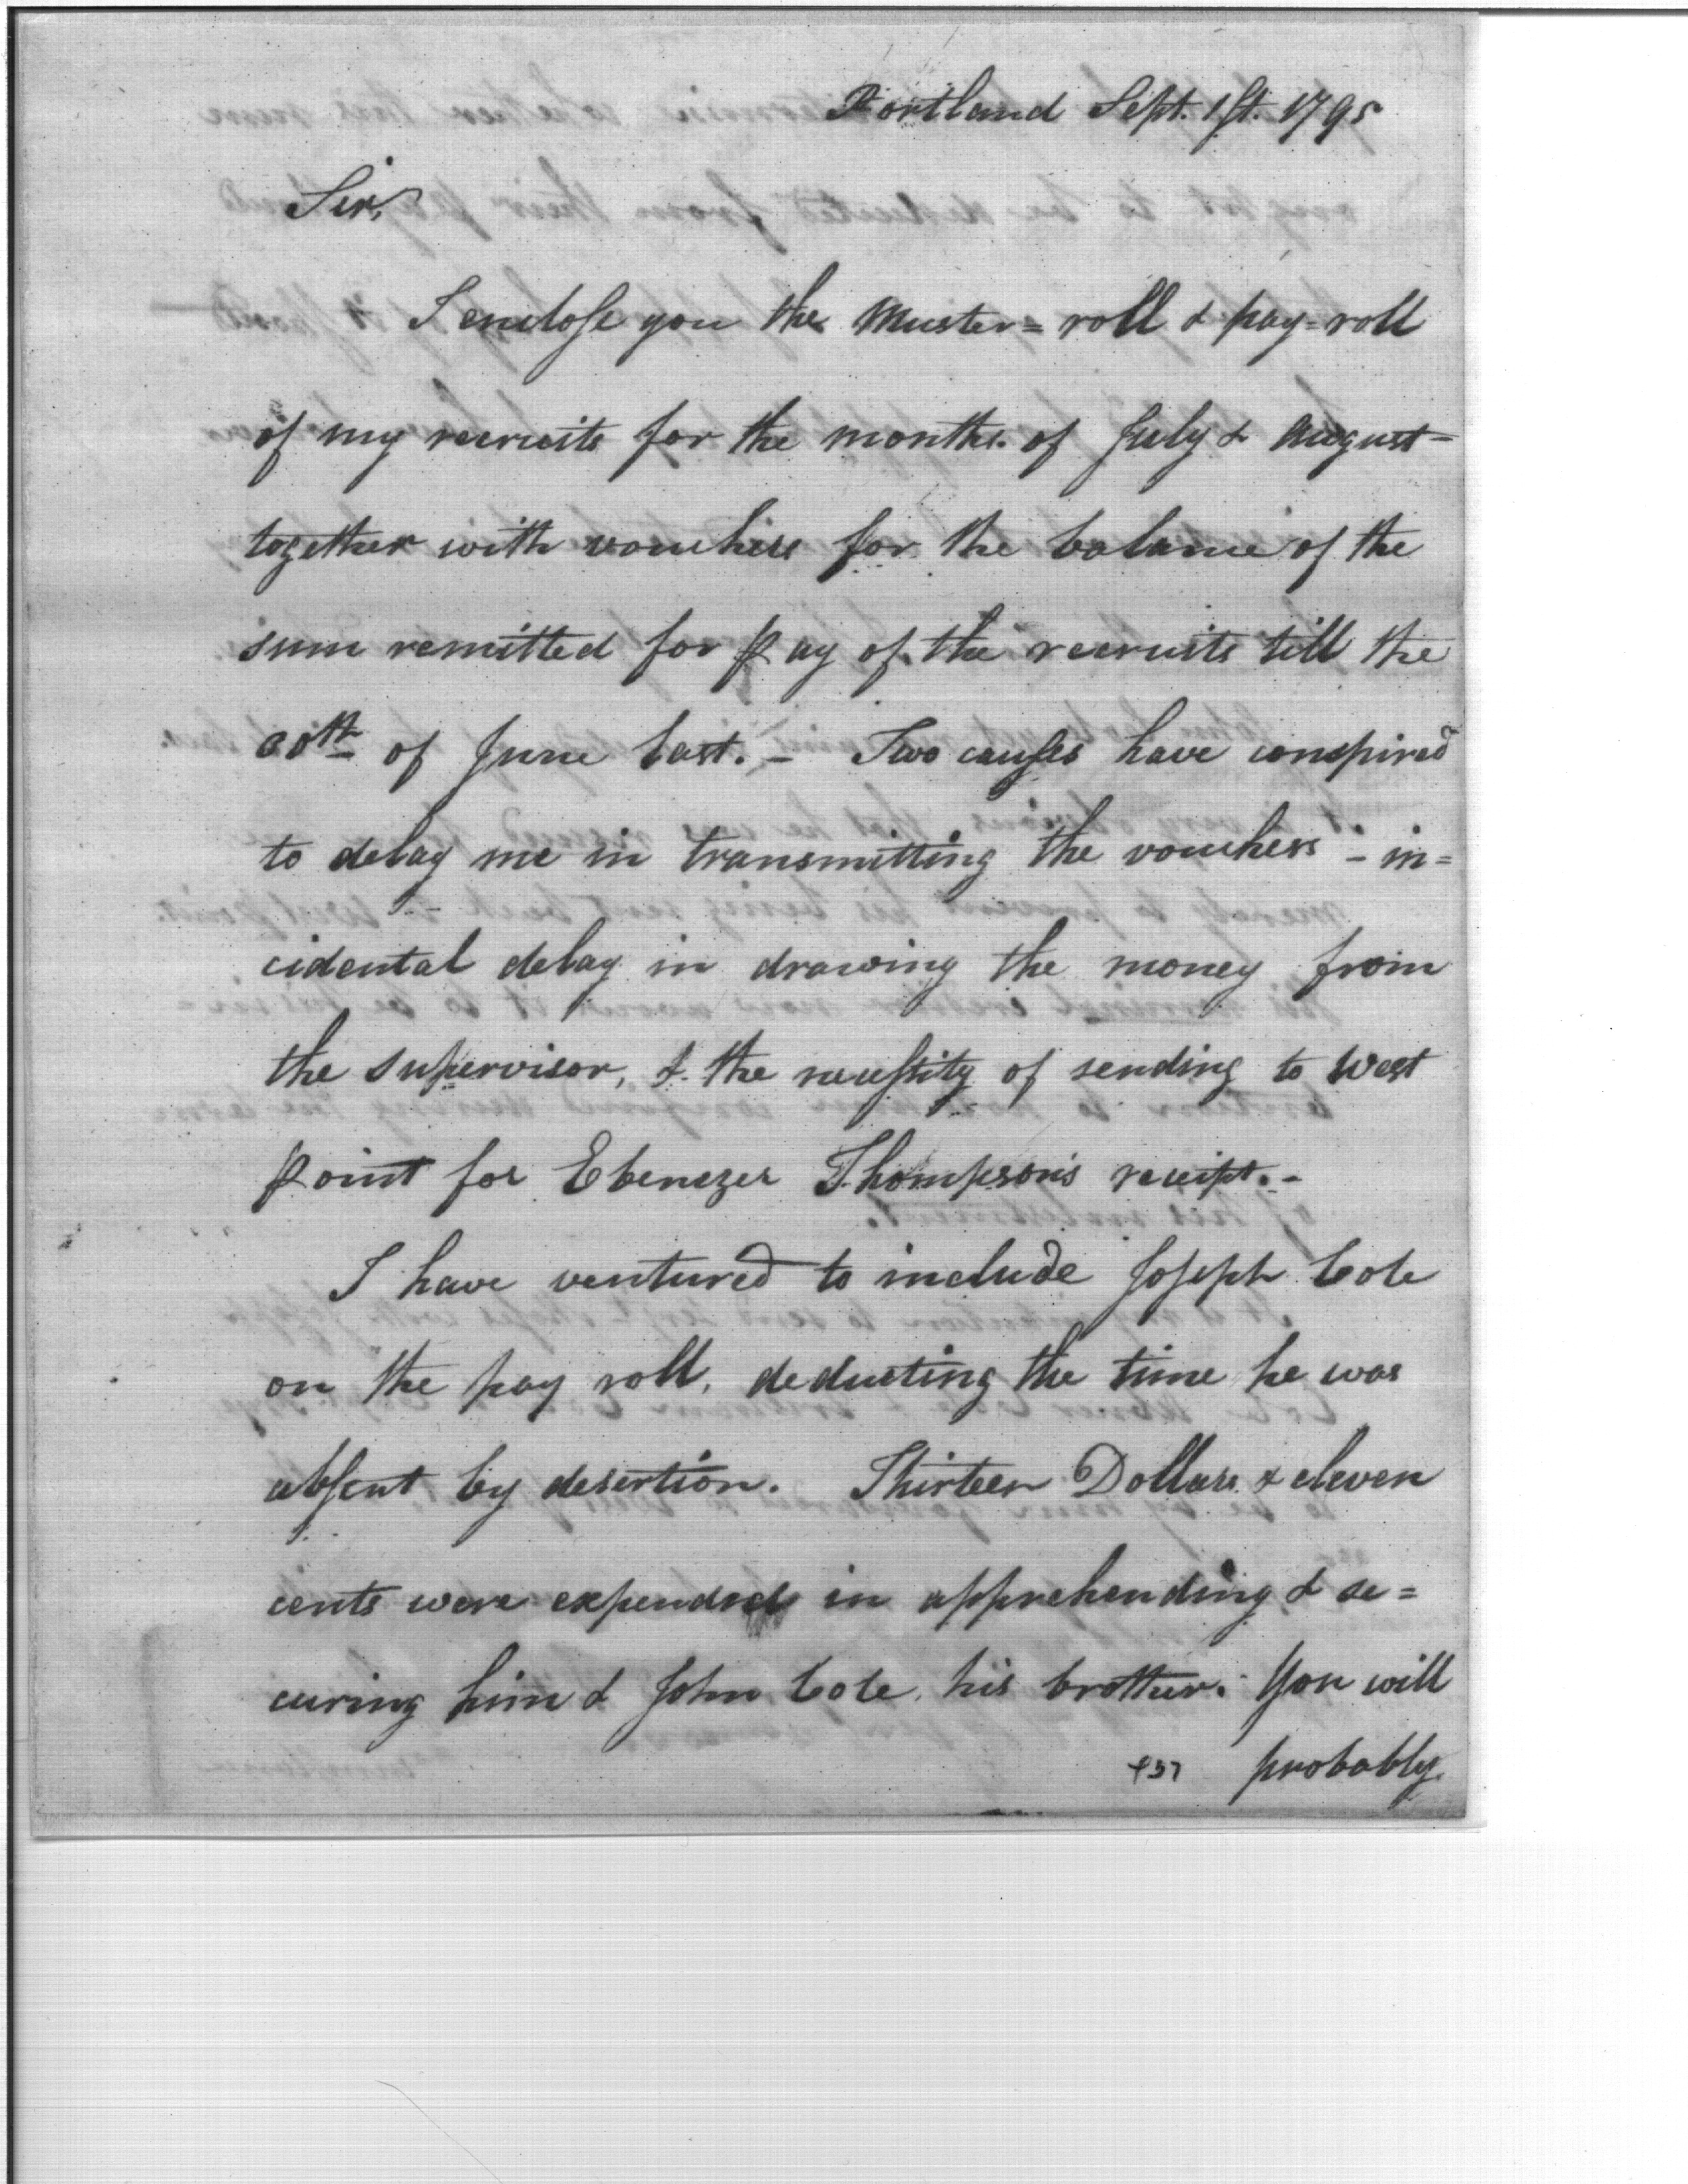 Portland Sept. 1st. 1795
Sir,
I enclose you the Muster=roll & pay=roll
of my recruits for the months of July & August-
together with vouchers for the balance of the
sum remitted for pay of the recruits till the
30th of June last. - Two causes have conspired
to delay me in transmitting the vouchers - in=
cidental delay in drawing the money from
the supervisor, & the necessity of sending to West
point for Ebenezer Thompson's receipt. -
I have ventured to include Joseph Cole
on the pay roll, deducting the time he was
absent by desertion. Thirteen Dollars & eleven
cents were expended in apprehending & se=
curing him & John Cole, his brother. You will
probably